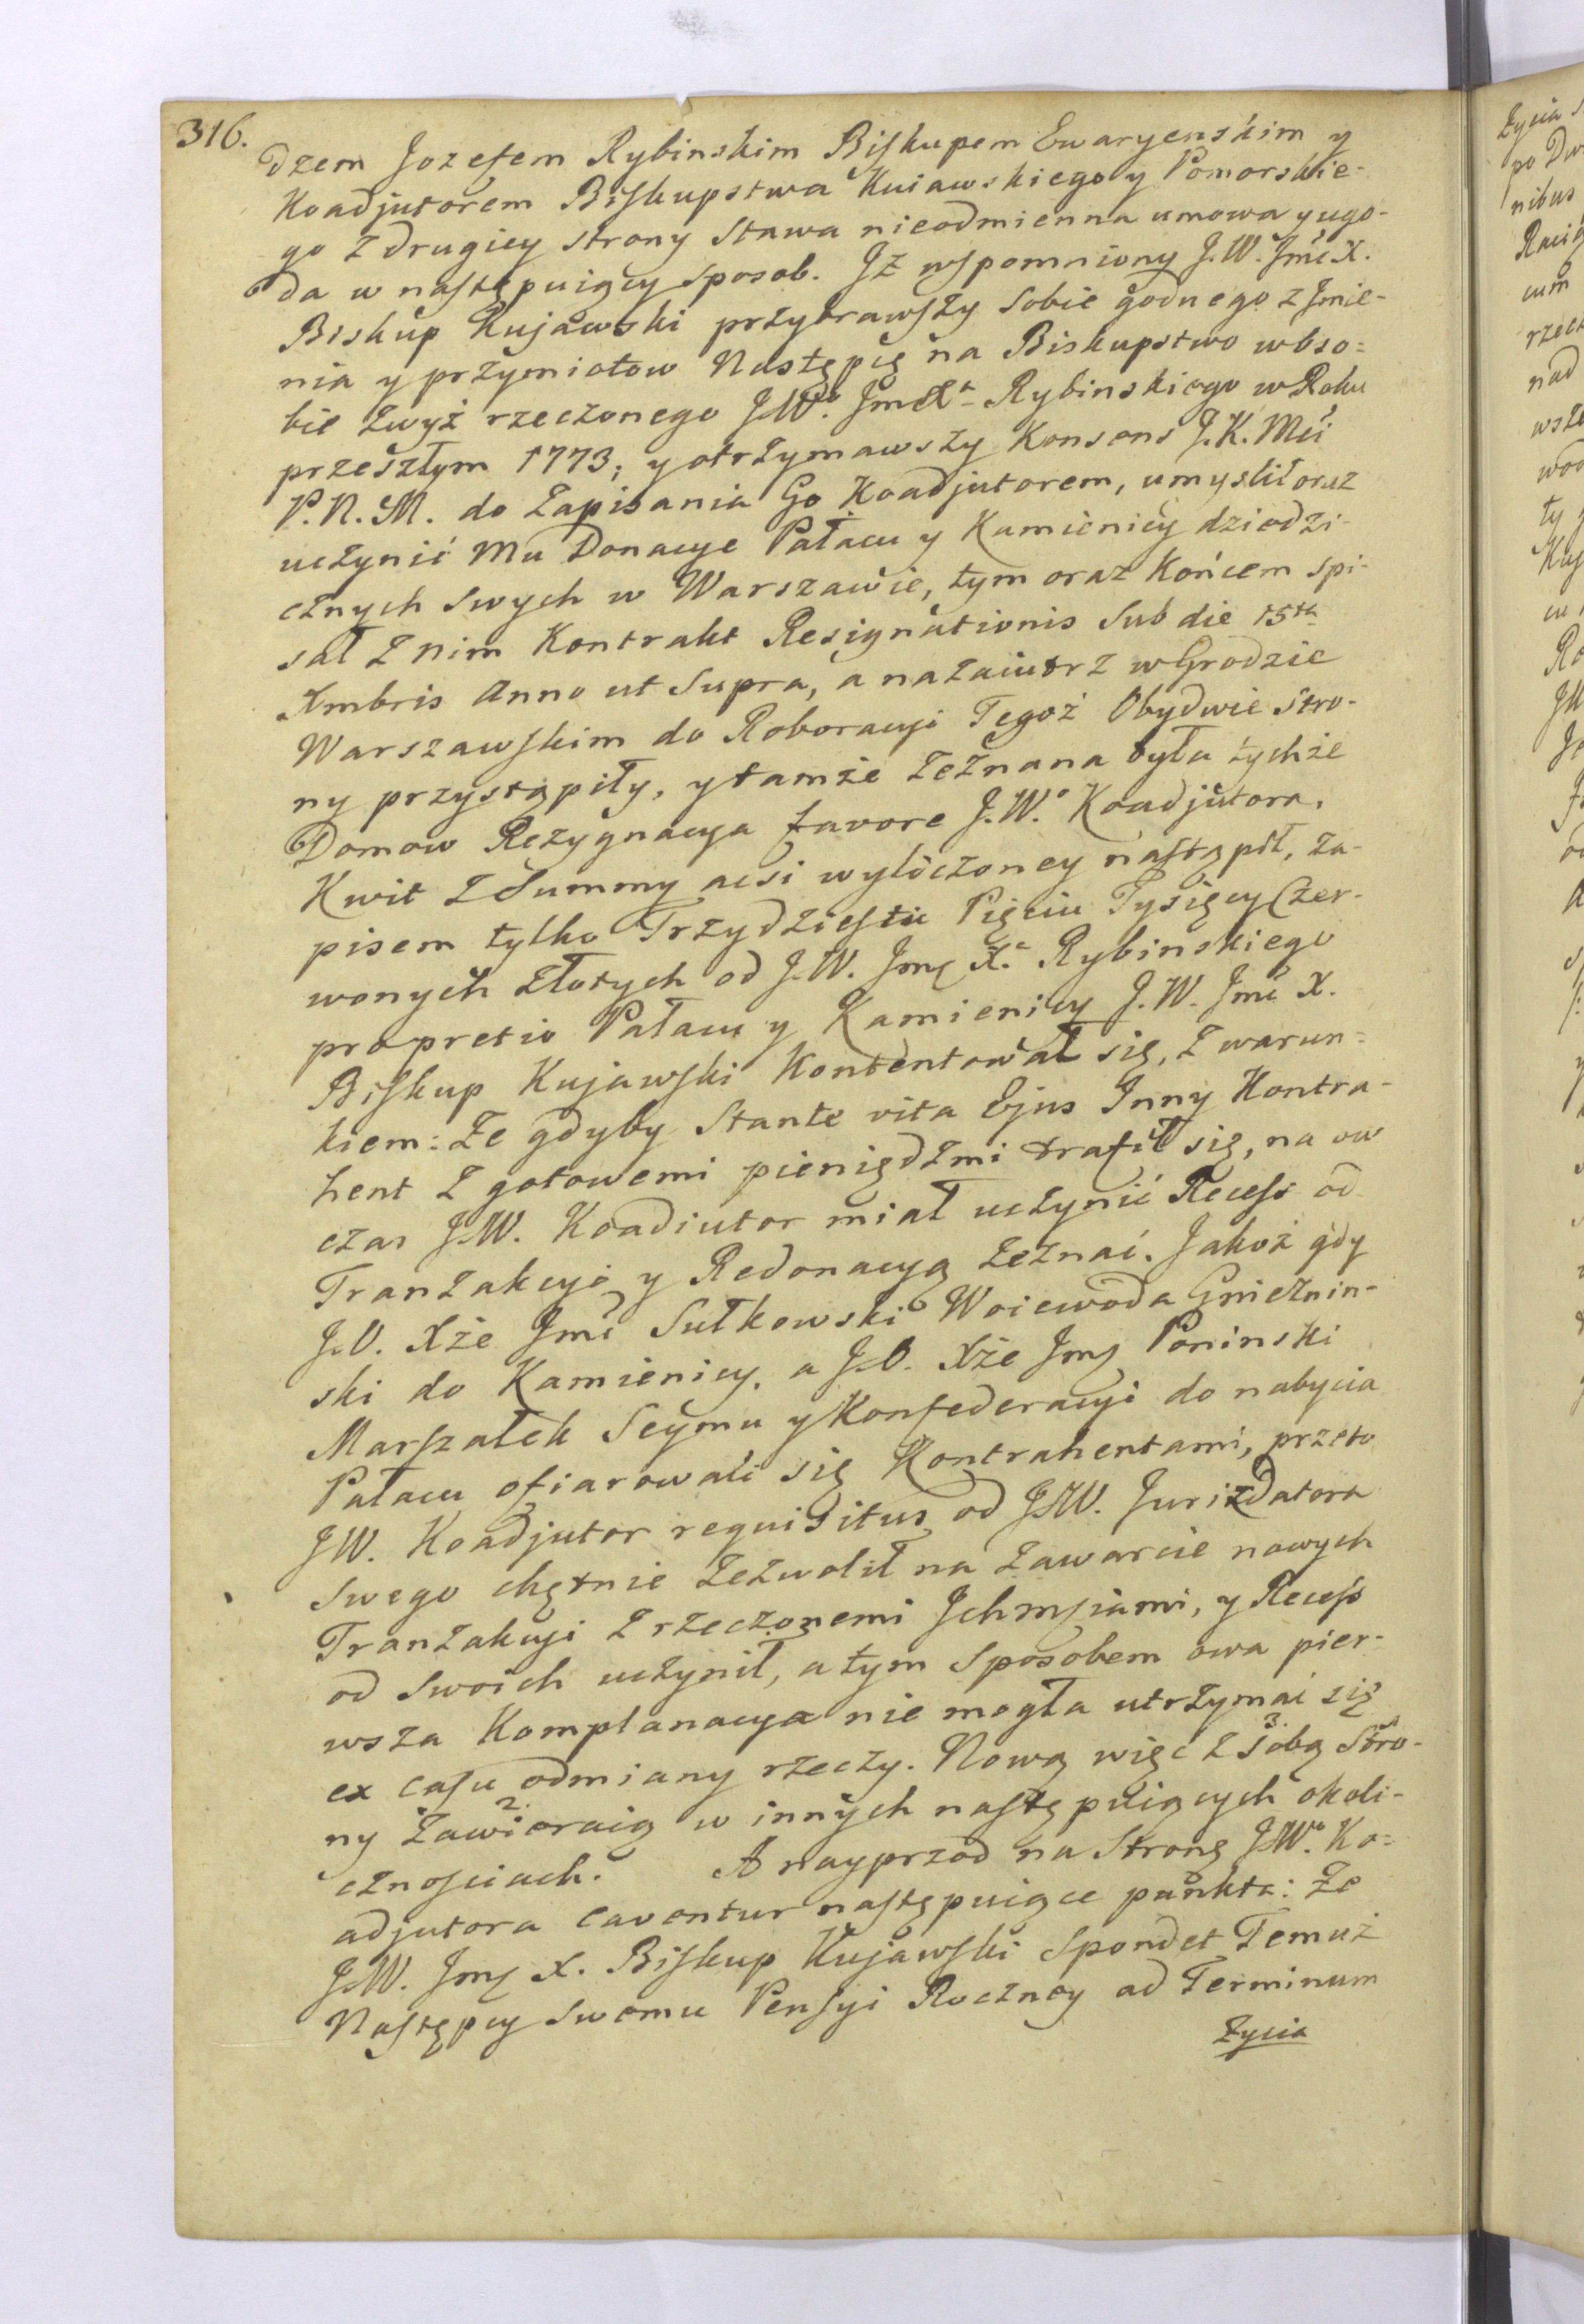 316.
dzem Jozefem Rybinskim Biskupem Ewaryenskim y
Koadjutorem Biskupstwa Kuiawskiego y Pomorskie-
go z drugiey strony Stawa nieodmienna umowa y ugo-
da w następuiący sposob. Iż wspomniony J.W. Jmć X.
Biskup Kujawski przybrawszy Sobie godnego z Jmie-
nia y przymiotow Następcę na Biskupstwo wbso=
bie zwyż rzeczonego J.W.º Jm X.ª Rybinskiego w Roku
przeszłym 1773; y otrzymawszy Konsens J.K.Mći
P.N.M. do Zapisania Go Koadjutorem, umyslił oraz
uczynić Mu Donacye Pałacu y Kamienicy dziedzi-
cznych Swych w Warszawie, tym oraz Końcem spi-
sał z nim Kontrakt Resignationis Sub die 15ta
Xmbris Anno ut Supra, a nazaiutrz w Grodzie
Warszawskim do Roboracyi Tegoż Obydwie Stro-
ny przystąpiły, y tamże Zeznana była tychże
Domow Rezygnacya favore J.W.º Koadjutora.
Kwit z Summy acsi wyliczoney nastąpił, za-
pisem tylko Trzydziestu Pięciu Tysięcy Czer-
wonych Złotych od J.W. Jmę X.ª Rybinskiego
pro pretio Pałacu y Kamienicy J.W. Jmć X.
Biskup Kujawski Kontentował się, z warun=
kiem: Ze gdyby Stante vita Ejus Inny Kontra-
hent z gotowemi pieniędzmi trafił się, na ow
czas J.W. Koadiutor miał uczynić Recess od
Tranzakcyi y Redonacyą Zeznać. Jakoż gdy
J.O. Xże Jmć Sułkowski Woiewoda Gnieznin-
ski do Kamienicy, a J.O. Xże Jmę Poninski
Marszałek Seymu y Konfederacyi do nabycia
Pałacu ofiarowali się Kontrahentami, przeto
JW. Koadjutor requisitus od J.W. Jurizdatora
Swego chętnie Zezwolił na Zawarcie nowych
Tranzakcyi z rzeczonemi Ichmściami, y Recess
od Swoich uczynił, a tym Sposobem owa pier-
wsza Komplanacya nie mogła utrzymać się
ex casu odmiany rzeczy. Nową więc z Sobą 3. Stro-
ny Zawieraią 2. w innych następuiących okoli-
cznosciach. A nayprzod na Stronę J.W.º Ko=
adjutora caventur następuiące punkta: Ze
J.W. Jmę X. Biskup Kujawski Spondet Temuż
Następcy Swemu Pensyi Roczney ad Terminum
Zycia